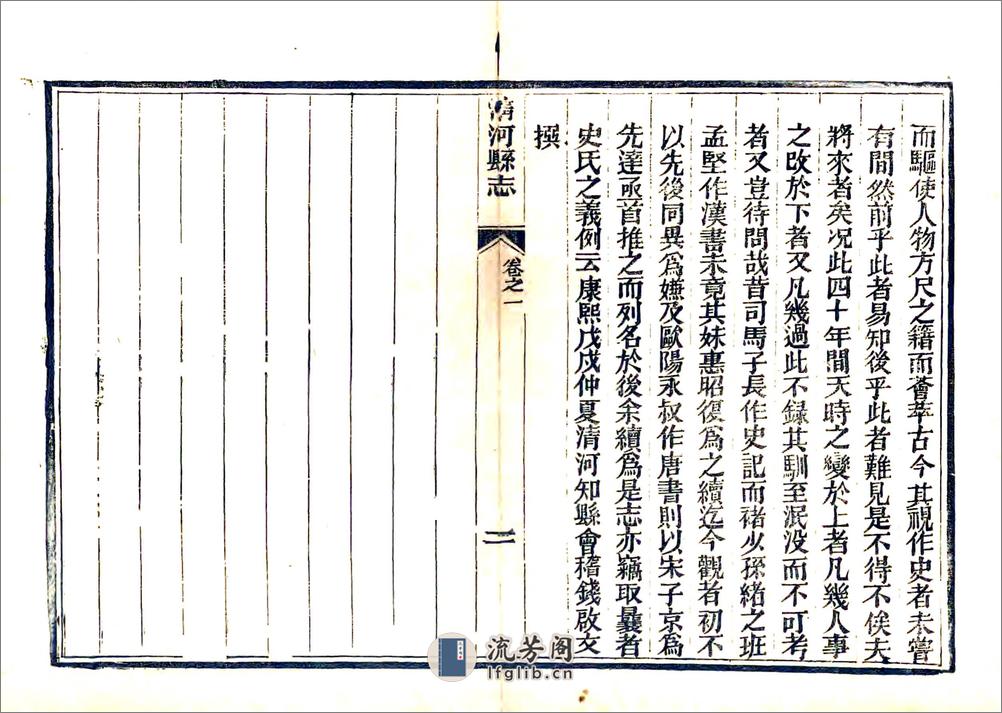 而驅使人物方尺之籍而薈萃古今其視作史者未嘗
有間然前乎此者易知後乎此者難見是不得不俟夫
將來者矣况此四十年間天時之變於上者凡幾人事
之改於下者又凡幾過此不録其馴至泯没而不可考
者又豈待問哉昔司馬子長作史記而褚少孫緒之班
孟堅作漢書未竟其妹惠昭復爲之續迄今觀者初不
以先後同異爲嫌及歐陽永叔作唐書則以宋子京爲
先達亟首推之而列名於後余續爲是志亦竊取曩者
史氏之義例云康熙戊戌仲夏清河知縣會稽錢啟文
撰
清河縣志
卷之一
二
流芳阁
lfglib.cn